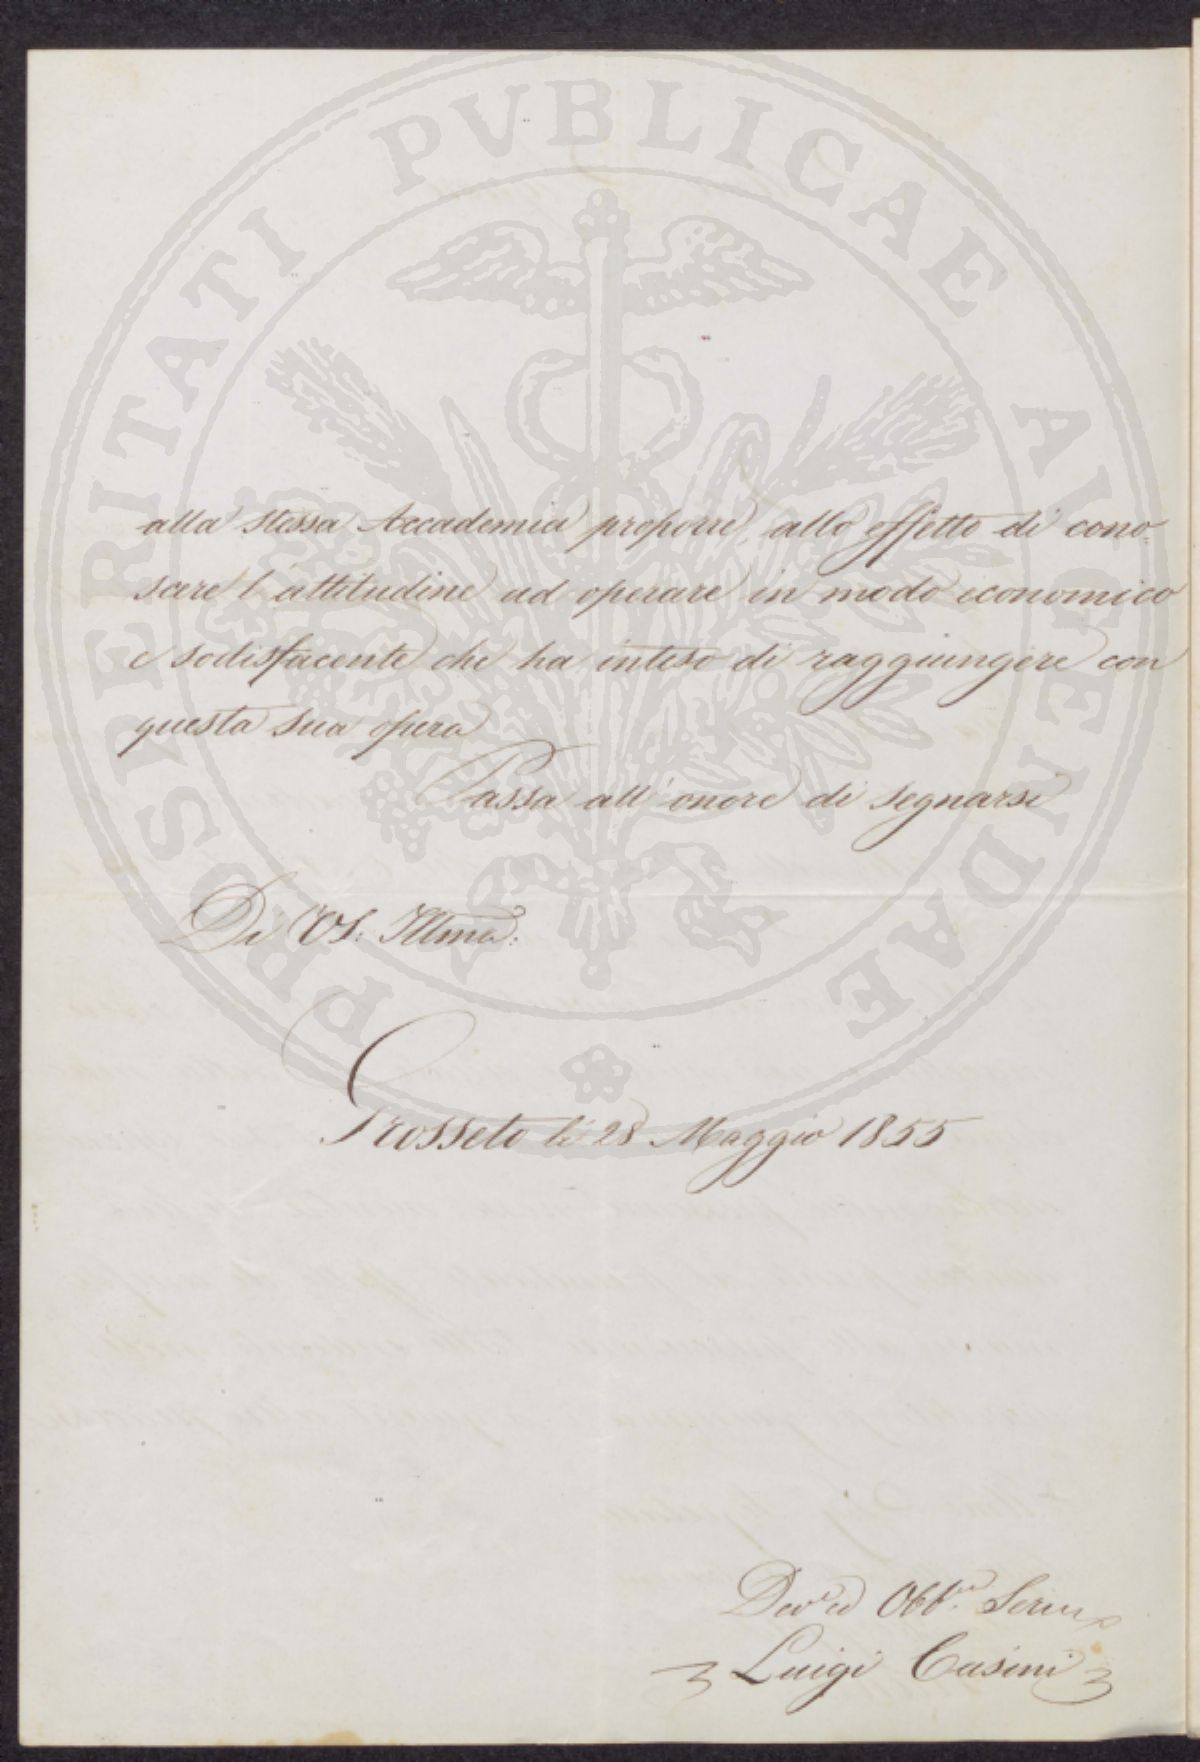 PROSPERITATI PUBLICAE AUGENDAE
alla stessa Accademia proporre, allo effetto di cono=
scere l'attitudine ad operare in modo economico
e sodisfacente che ha inteso di raggiungere con
questa sua opera
Passa all'onore di segnarsi
Di VS: Illma:
Grosseto li 28 Maggio 1855
Dev.e ed Obb.mo Serv
Luigi Casini